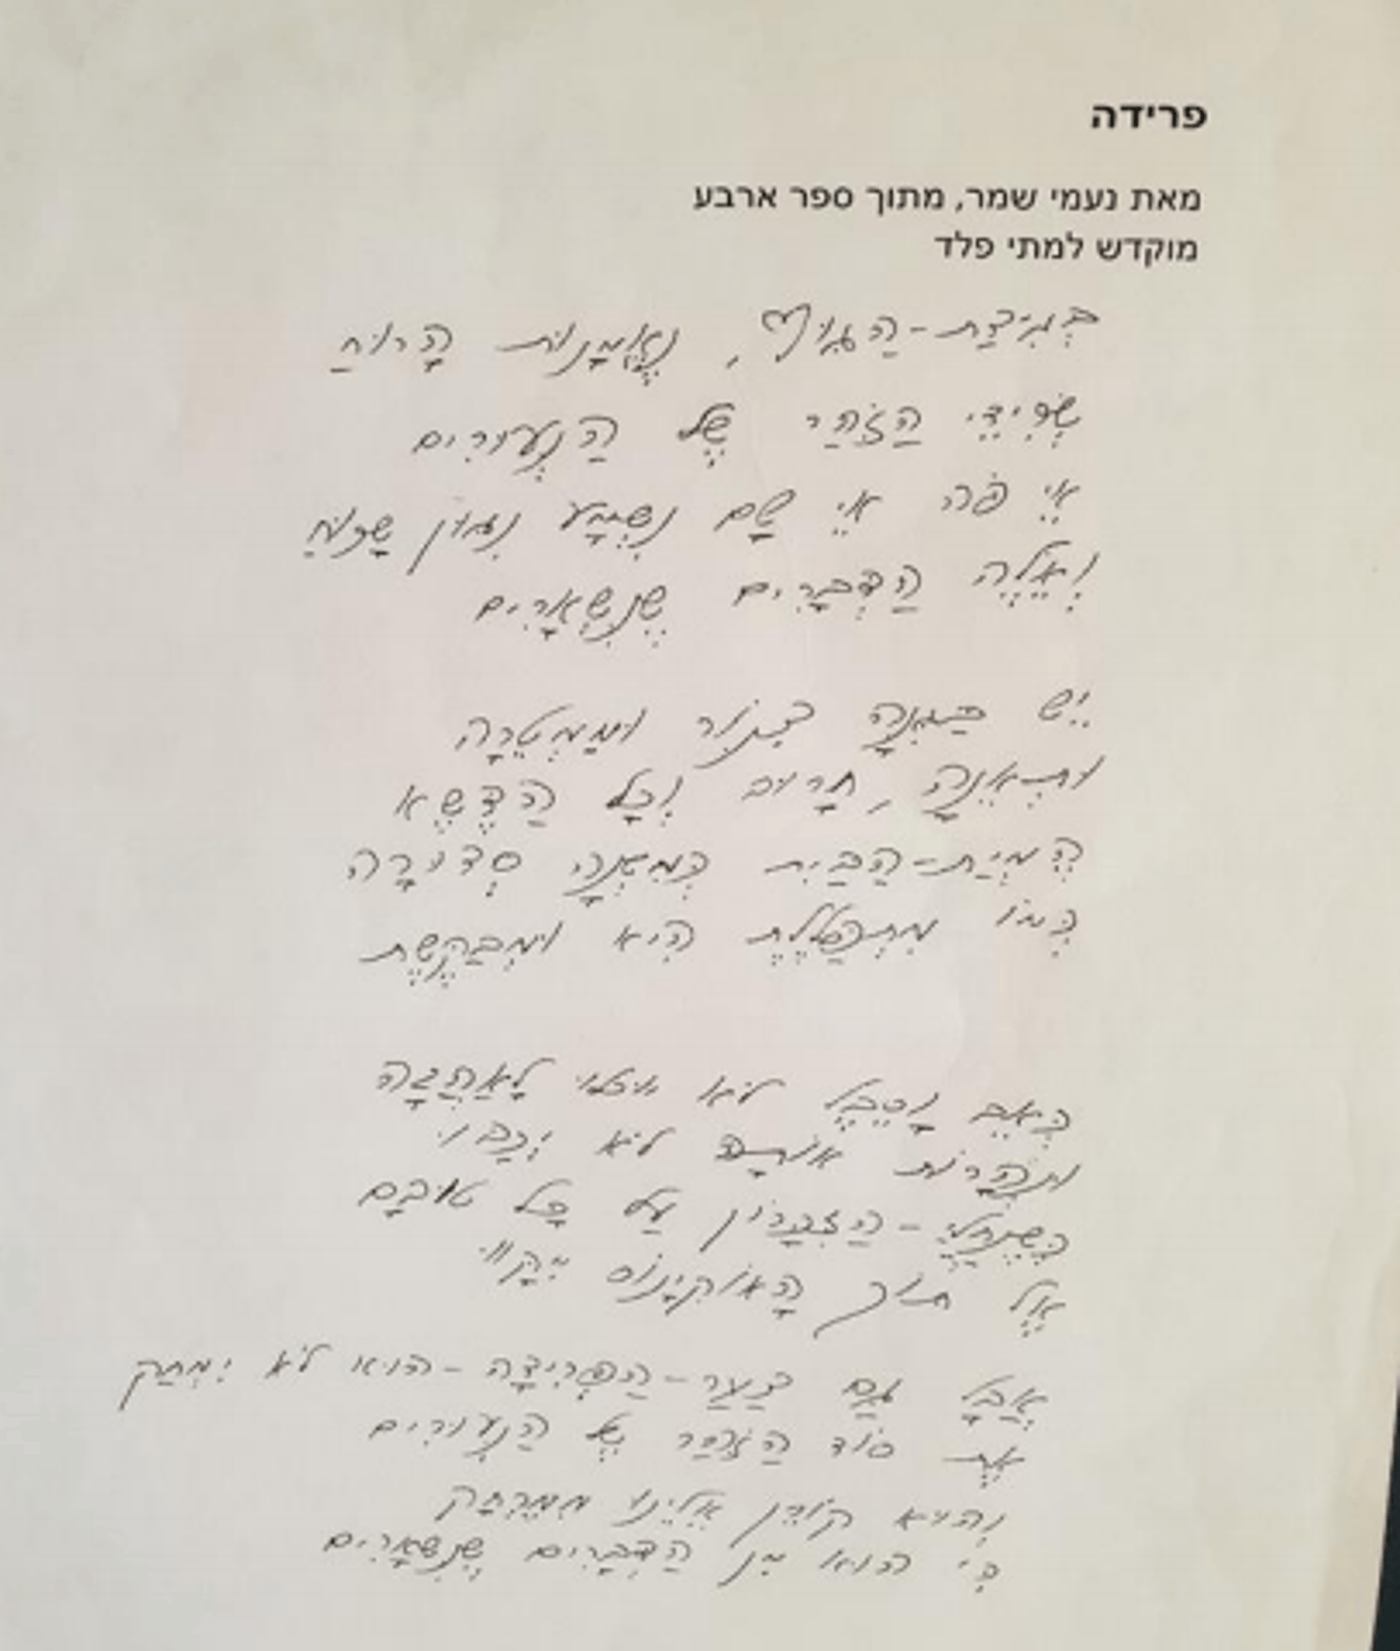 פרידה
מאת נעמי שמר, מתוך ספר ארבע
מוקדש למתי פלד
בְּגִידַת-הַגּוּף, נֶאֱמָנוּת הָרוּחַ
שְׂרִידֵי הַזֹּהַר שֶׁל הַנְּעוּרִים
אֵי פֹּה אֵי שָׁם נִשְׁמָע נִגּוּן שָׁכוּחַ
וְאֵלֶּה הַדְּבָרִים שֶׁנִּשְׁאָרִים
יֵשׁ בַּגִּנָּה צִנּוֹר וּמַמְטֵרָה
וּתְאֵנָה, חָרוּב וְכָל הַדֶּשֶׁא
הֶמְיַת-הַבַּיִת כְּמִשְׁנָה סְדוּרָה
כְּמוֹ מִתְפַּלֶּלֶת הִיא וּמְבַקֶּשֶׁת
כְּאֵב וָסֵבֶל לֹא יוּכְלוּ לָאַהֲבָה
וּנְהָרוֹת אוֹתָהּ לֹא יְכַבּוּ
כְּשֶׁנַּחֲלֵי-הַזִּכָּרוֹן עַל כָּל טוּבָם
אֶל תוֹךְ הָאוֹקְיָנוֹס יִקָּווּ
אֲבָל גַּם צַעַר-הַפְּרִידָה-הוּא לֹא יִמְחַק
אֶת סוֹד הַזֹּהַר שֶׁל הַנְּעוּרִים
וְהוּא קוֹרֵן אֵלֵינוּ מִמֶּרְחָק
כִּי הוּא מִן הַדְּבָרִים שֶׁנִּשְׁאָרִים